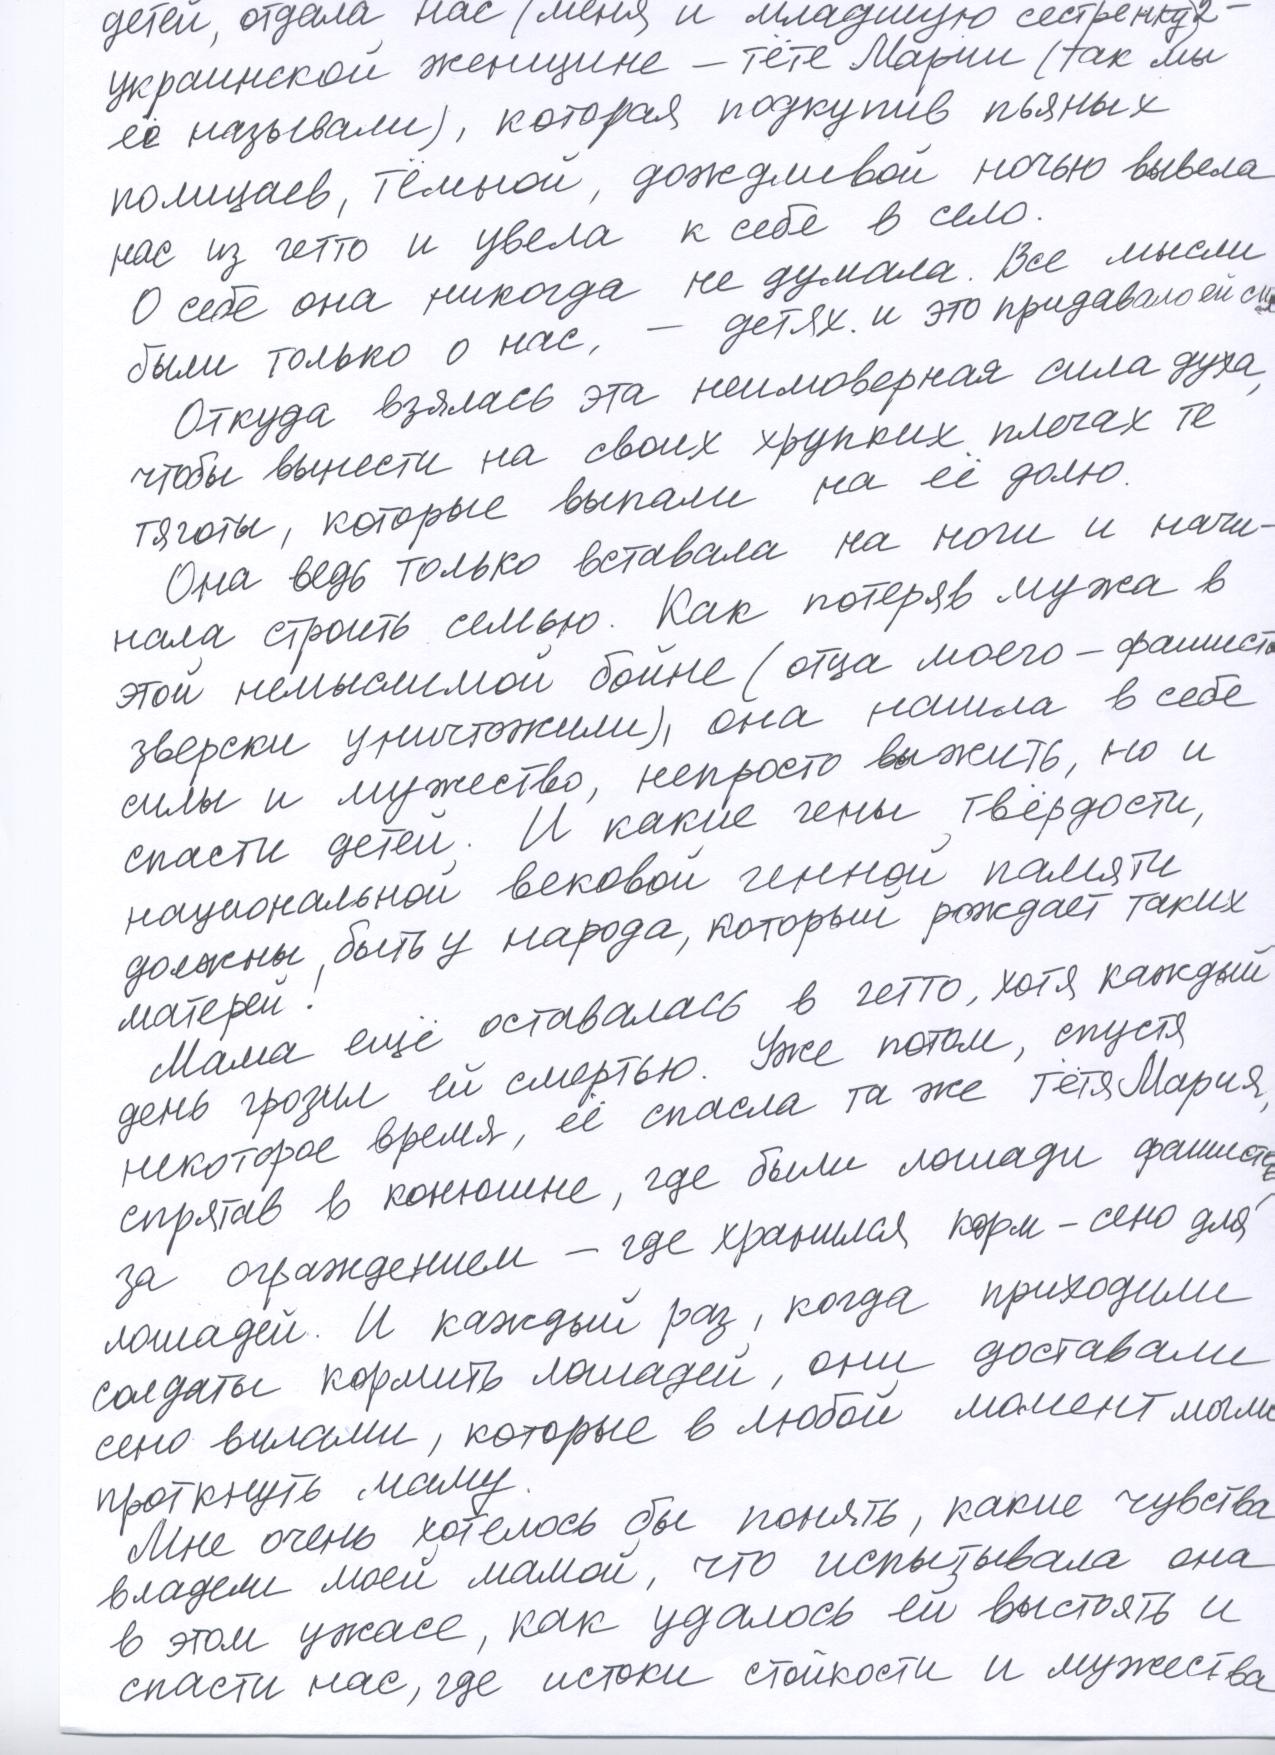 детей, отдала нас (меня и младшую сестрёнку) 2-
украинской женщине – тёте Марии (так мы
её называли), которая подкупив пьяных
полицаев, тёмной, дождливой ночью вывела
нас из гетто и увела к себе в село.
О себе она никогда не думала. Все мысли
были только о нас, – детях. и это придавало ей сил
Откуда взялась эта неимоверная сила духа,
чтобы вынести на своих хрупких плечах те
тяготы, которые выпали на её долю.
Она ведь только вставала на ноги и начи-
нала строить семью. Как потеряв мужа в
этой немыслимой бойне (отца моего – фашисты
зверски уничтожили), она нашла в себе
силы и мужество, непросто выжить, но и
спасти детей. И какие гены твёрдости,
национальной вековой генной памяти
должны быть у народа, который рождает таких
матерей!
Мама ещё оставалась в гетто, хотя каждый
день грозил ей смертью. Уже потом, спустя
некоторое время, её спасла та же тётя Мария,
спрятав в конюшне, где были лошади фашистов
за ограждением – где хранился корм – сено для
лошадей. И каждый раз, когда приходили
солдаты кормить лошадей, они доставали
сено вилами, которые в любой момент могли
проткнуть маму.
Мне очень хотелось бы понять, какие чувства
владели моей мамой, что испытывала она
в этом ужасе, как удалось ей выстоять и
спасти нас, где истоки стойкости и мужества